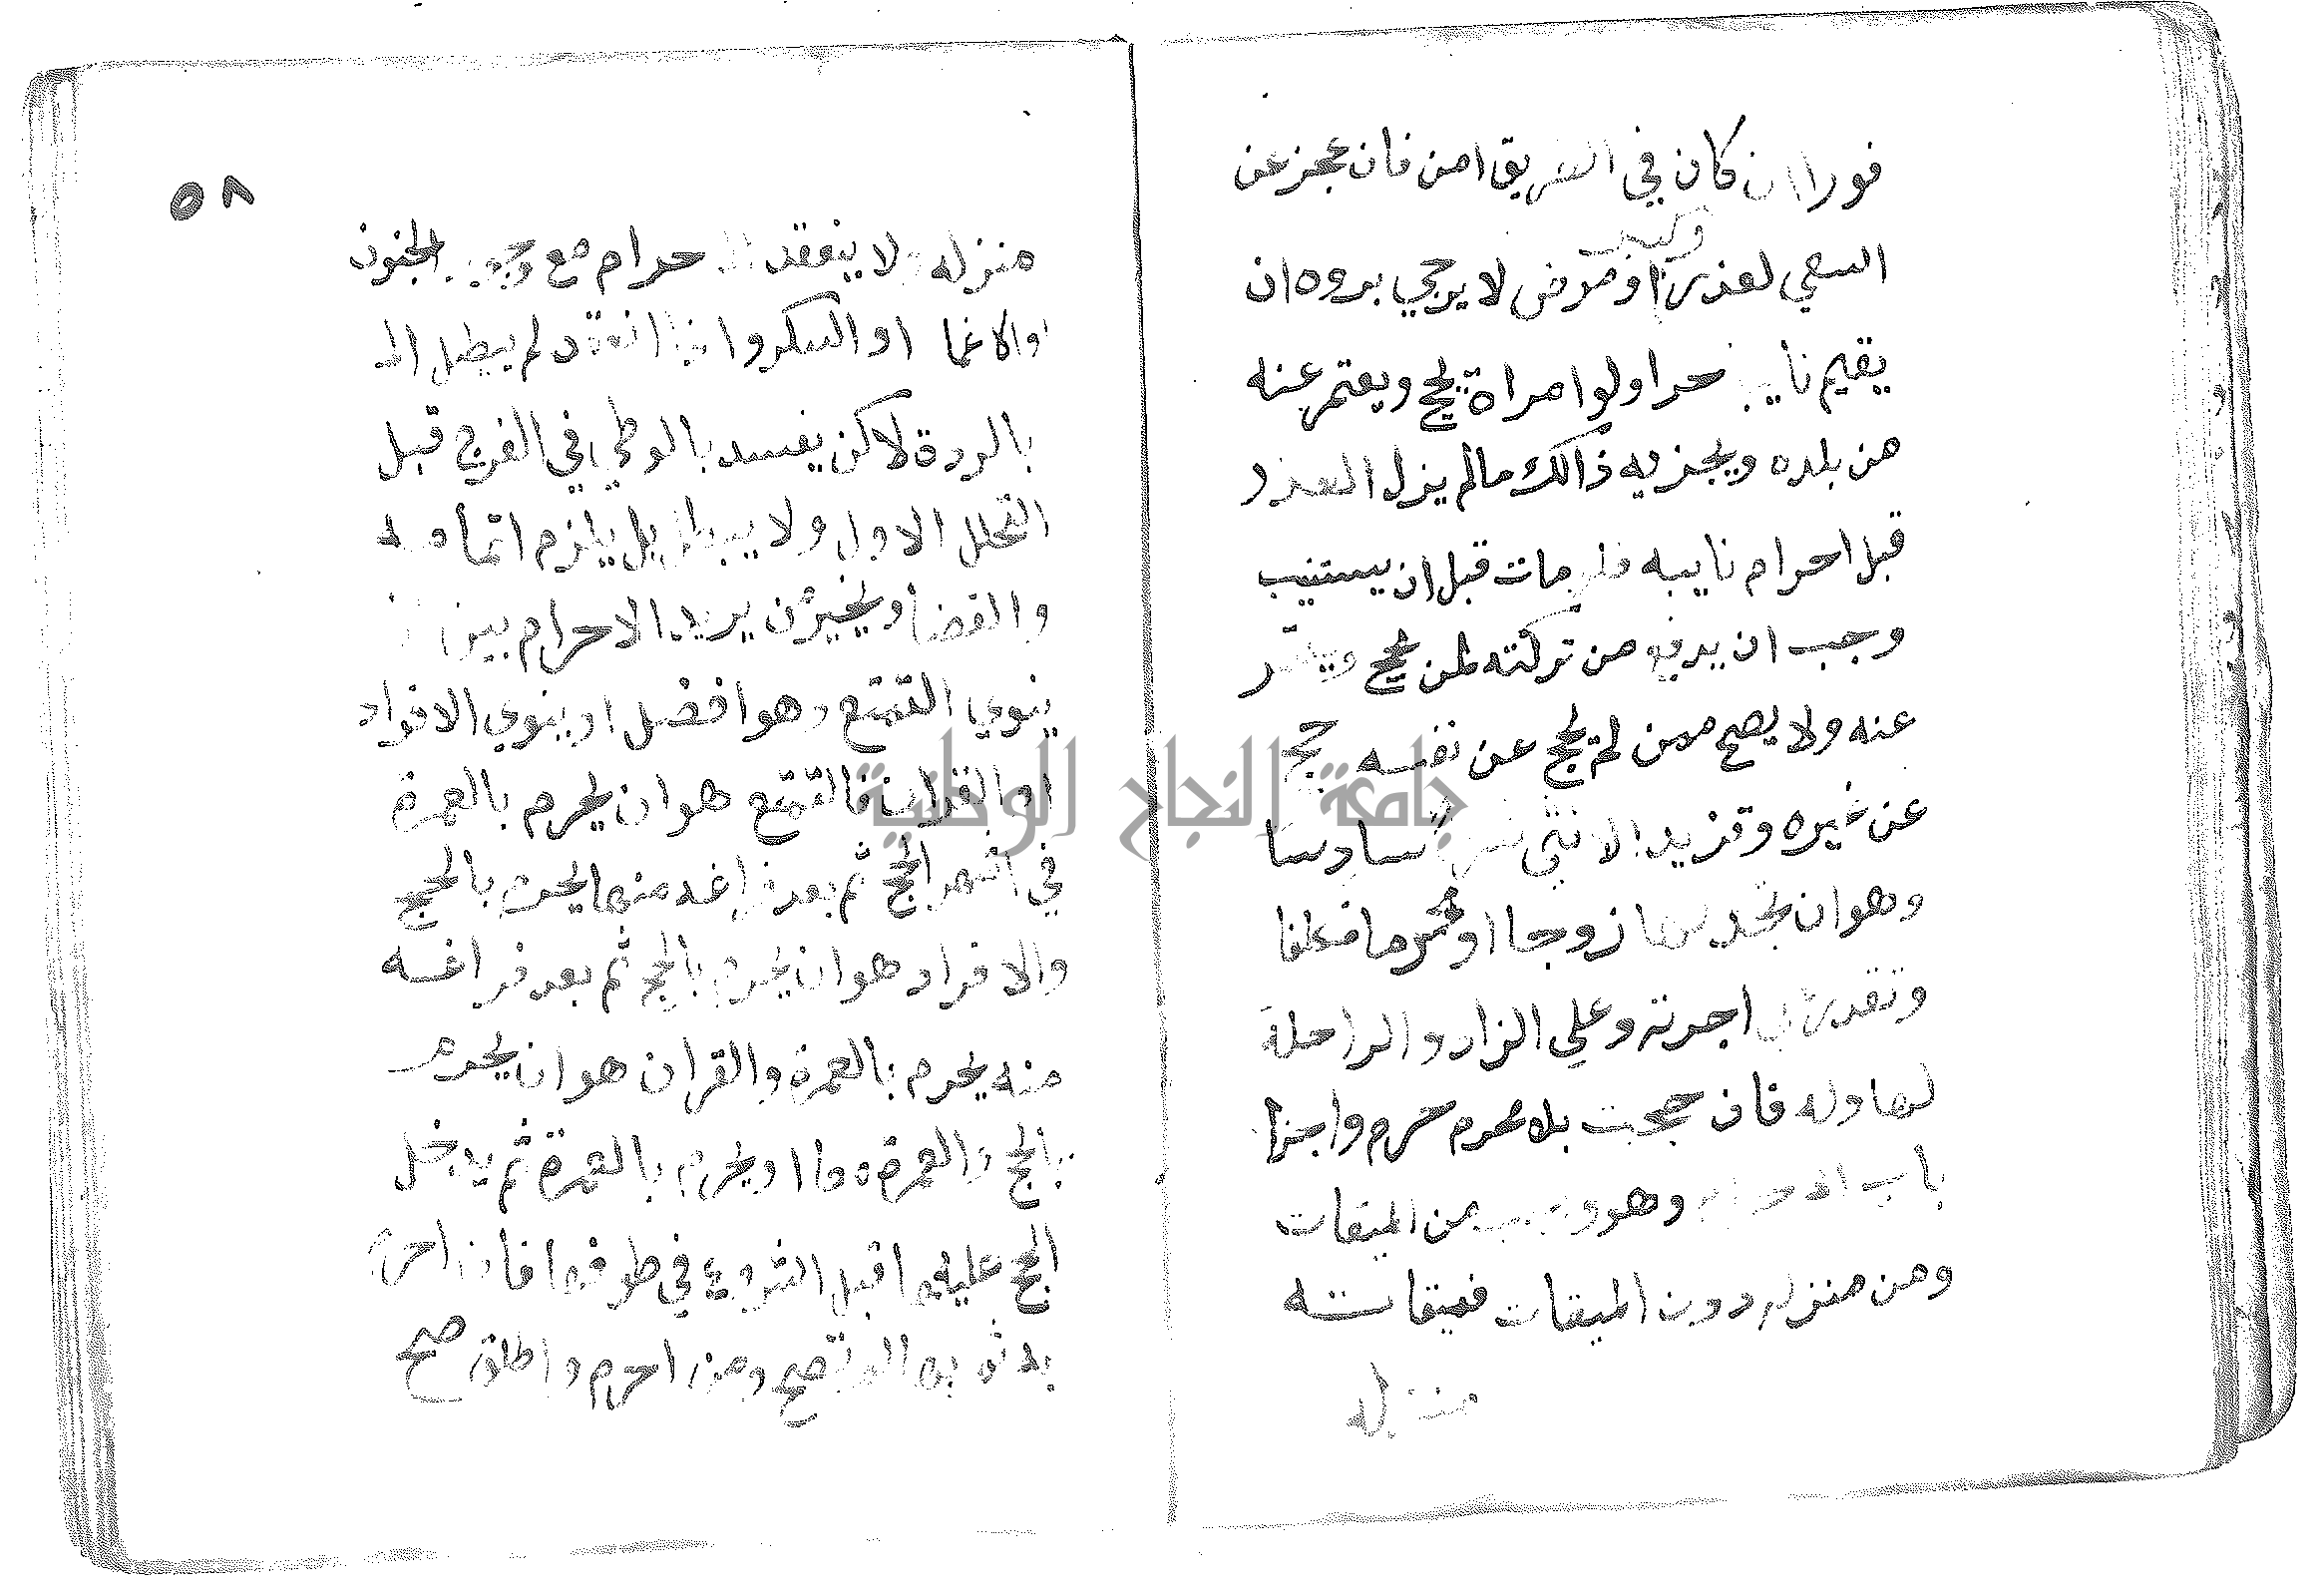 فورا ان كان في الطريق امن فان عجز عن
السعي لعذر كبر او مرض لا يرجي بروه ان
يقيم نايبا حرا ولو امراة يحج ويعتمر عنه
من بلده ويجزيه ذالك مالم يزل العذر
قبل احرام نايبه فلو مات قبل ان يستنيب
وجب ان يدفع من تركته لمن يحج ويعتمر
عنه ولا يصح ممن لم يحج عن نفسه حج
عن غيره وتزيد الانثى شرطا سادسا
وهو ان تجد لها زوجا او محرما مكلفا
وتقدر علي اجرته وعلي الزاد والراحلة
لها وله فان حججت بلا محرم حرم واجزا
باب الاحرام وهو واجب من الميقات
ومن منزله دون الميقات فميقاته
منزله
٥٨
منزله ولا ينعقد الاحرام مع وجود الجنون
والاغما او السكر واذا انعقد لم يبطل الا
بالردة لاكن يفسد بالوطي في الفرج قبل
التحلل الاول ولا يبطل بل يلزم اتمامه
والقضا ويخير من يريد الاحرام بين ان
ينوي التمتع وهو افضل او ينوي الافراد
او القران فالتمتع هو ان يحرم بالعمرة
في اشهر الحج ثم بعد فراغه منها يحرم بالحج
والافراد هو ان يحرم بالحج ثم بعد فراغه
منه يحرم بالعمرة والقران هو ان يحرم
بالحج والعمرة معا او يحرم بالعمرة ثم يدخل
الحج عليها قبل الشروع في طوفها فان احرم
به ثم بها لم تصح ومن احرم واطلق صح
جامعة النجاح الوطنية